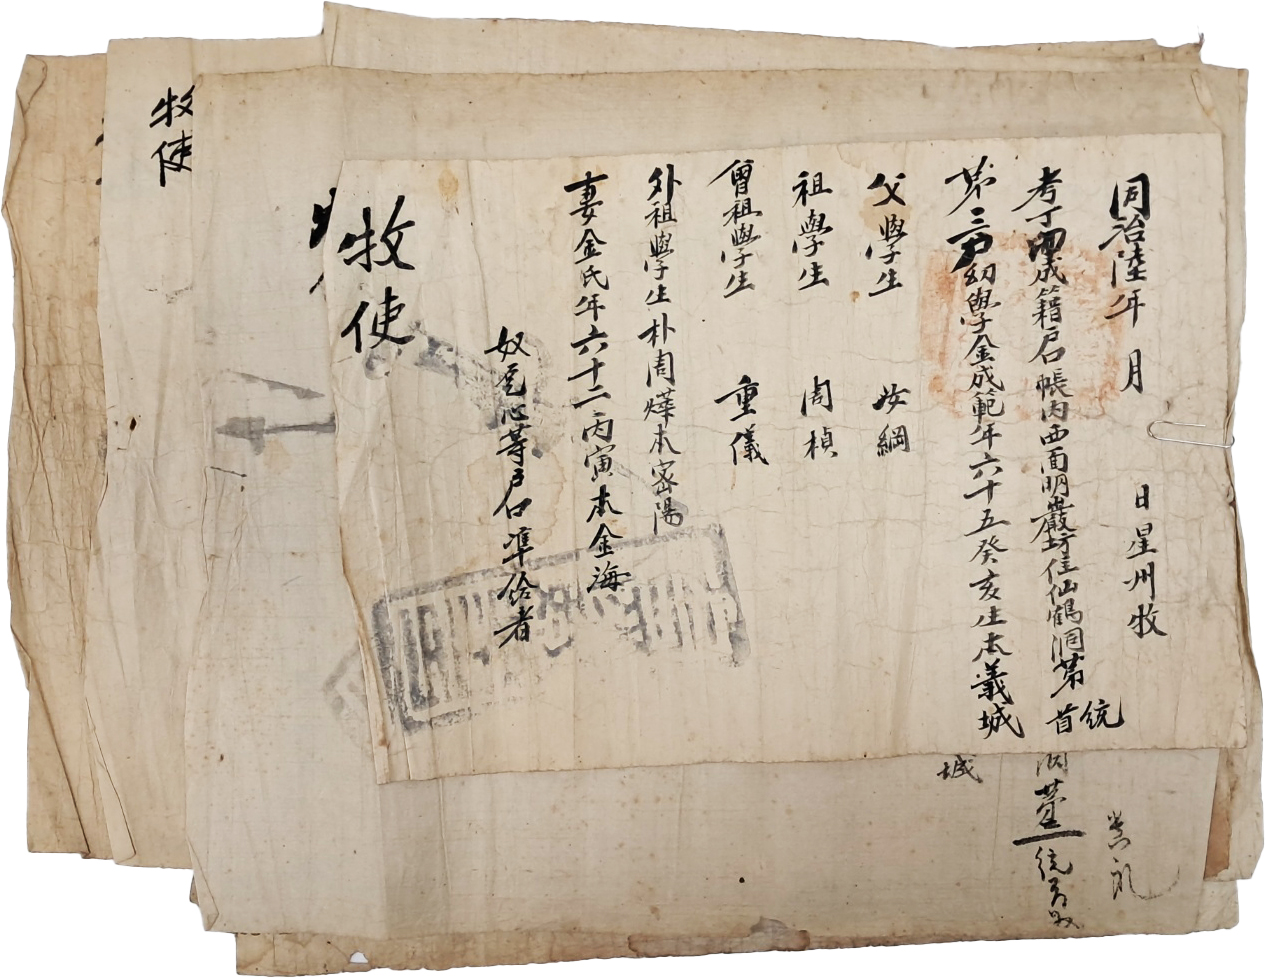 同治陸年 月 日星州牧
考丁卯成籍戶口帳內西面明巖坊住仙鶴洞第 統首
第三戶幼學金成範年六十五癸亥生本義城
父學生 汝綱
祖學生 周楨
曾祖學生 重儀
外祖學生朴周燁本密陽
妻金氏年六十二丙寅本金海
奴 心等戶口準給者
牧使
城
洞壹統首
牧使